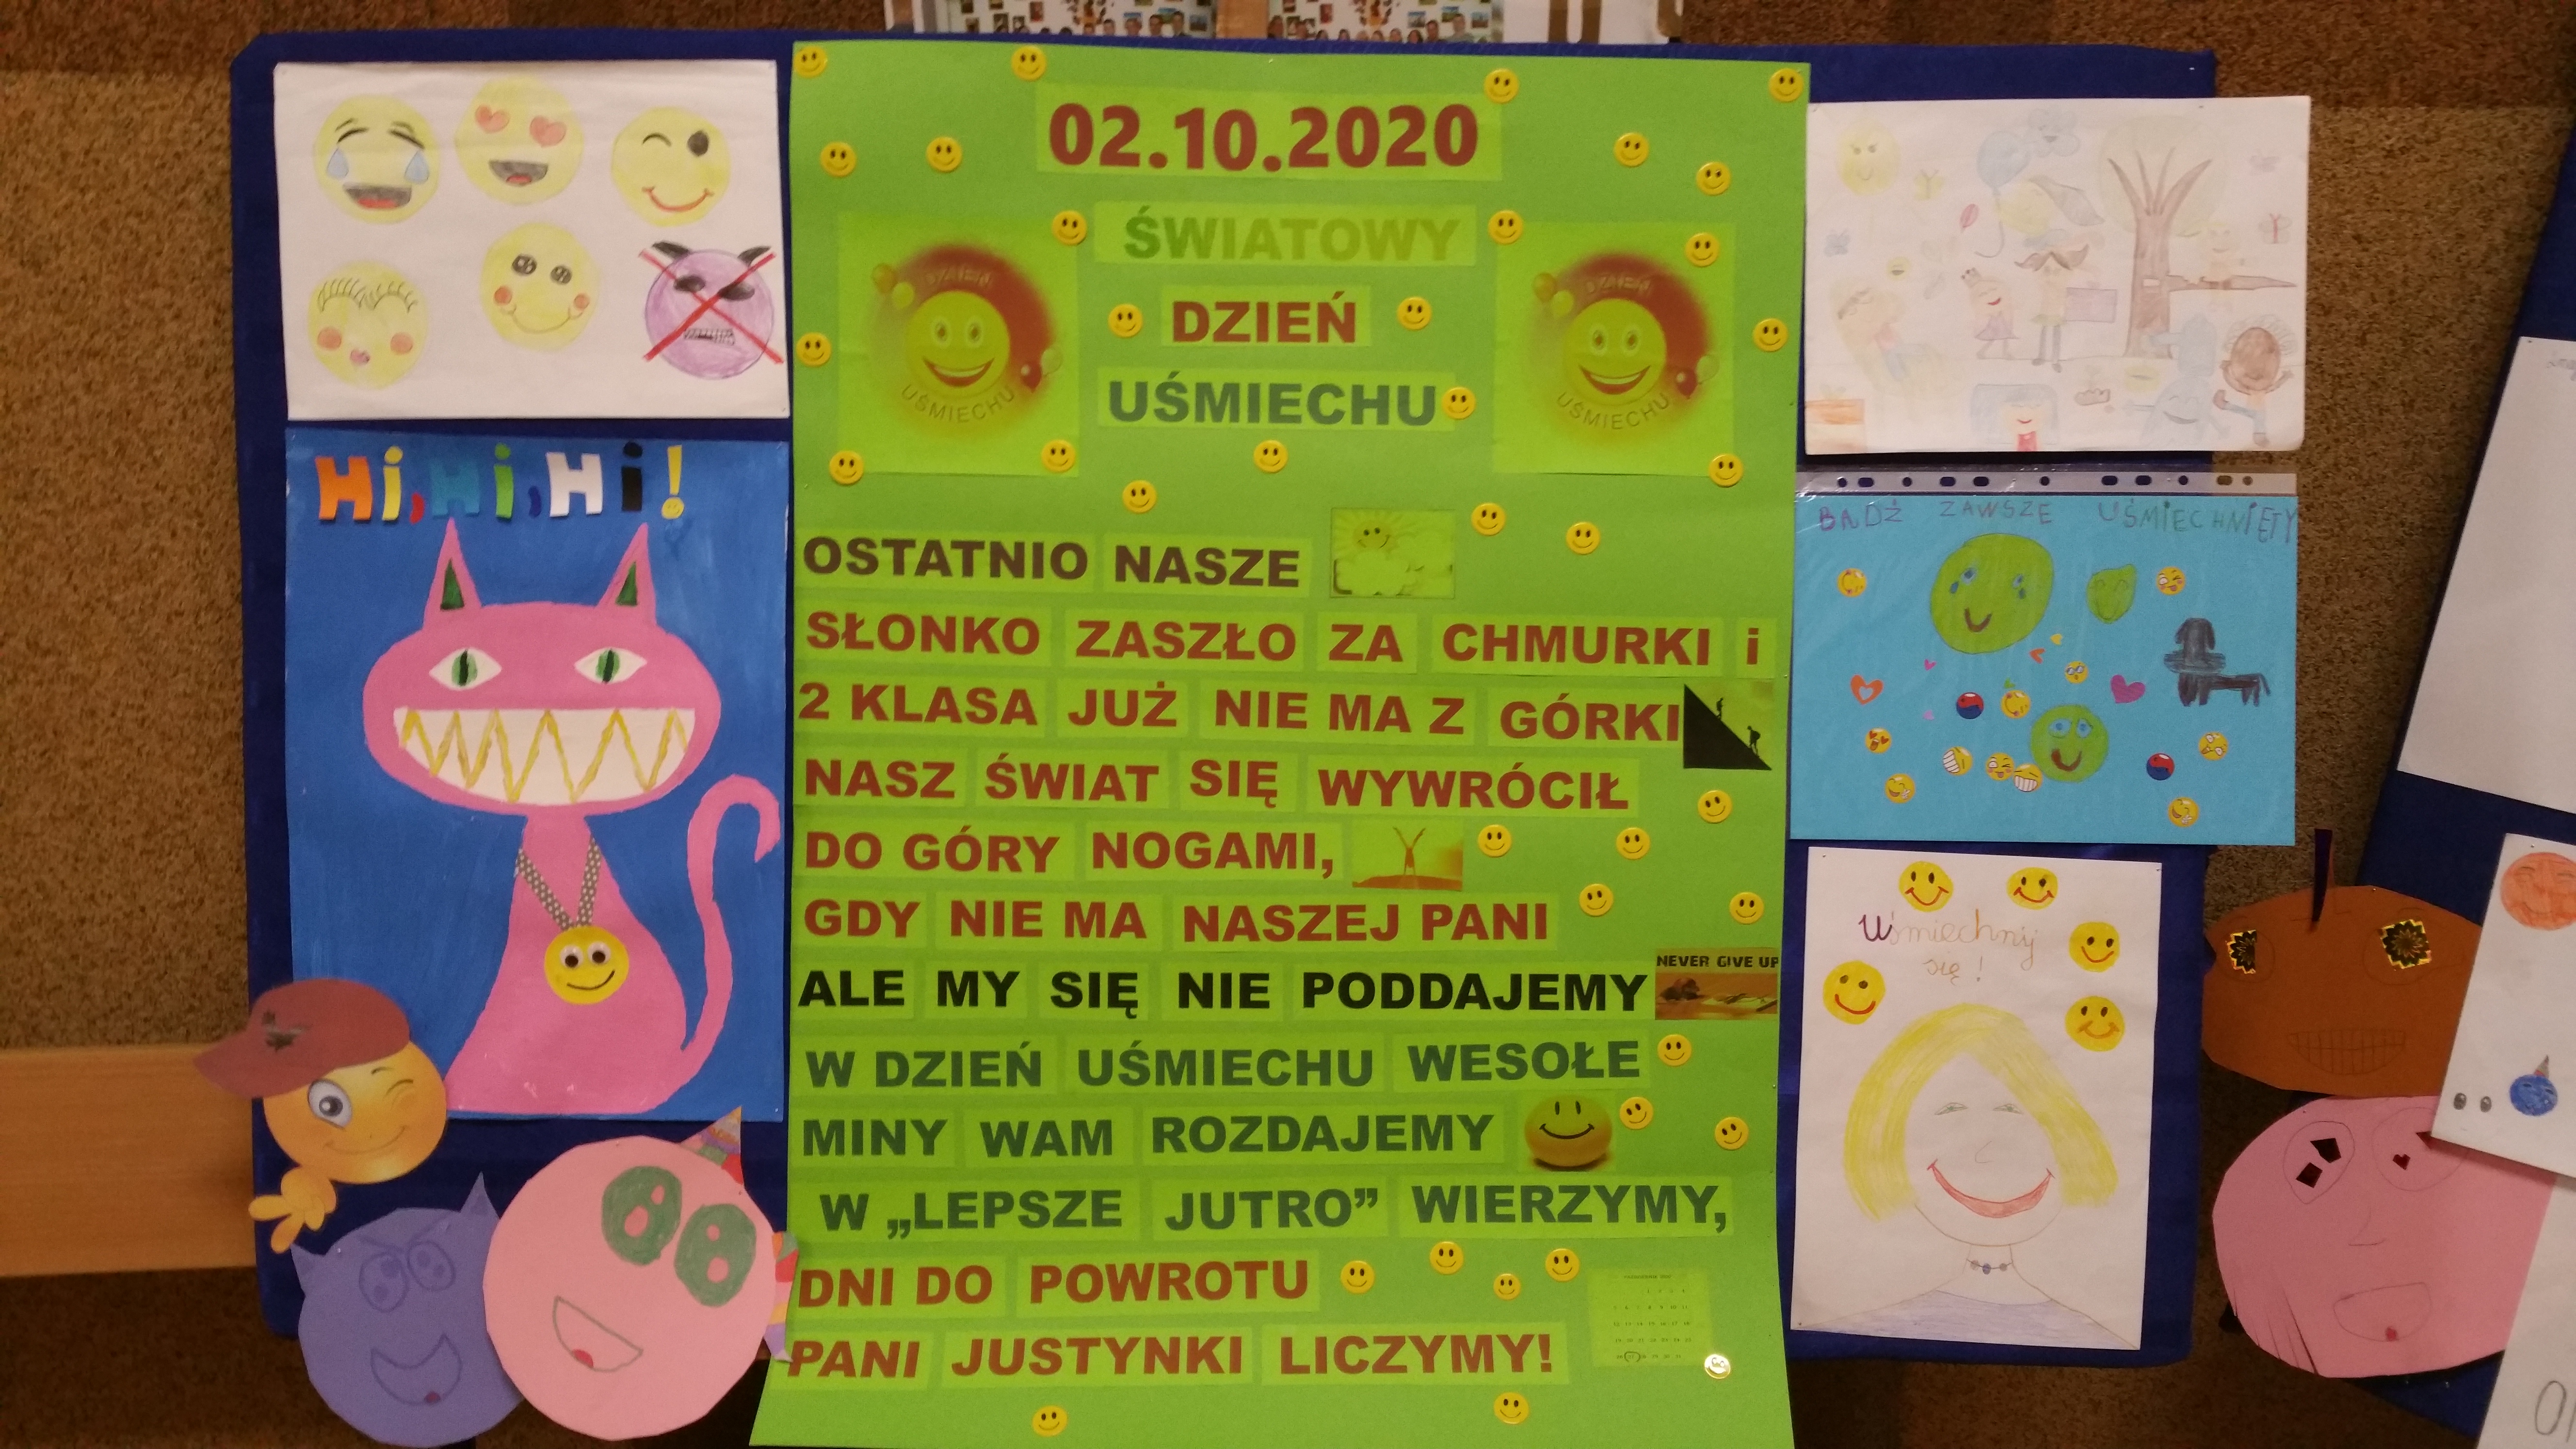 Hi, Hi, Hi!
02.10.2020
ŚWIATOWY
DZIEŃ
UŚMIECHU
DZIEŃ
UŚMIECHU
DZIEŃ
UŚMIECHU
OSTATNIO NASZE
SŁONKO ZASZŁO ZA CHMURKI i
2 KLASA JUŻ NIE MA Z GÓRKI
NASZ ŚWIAT SIĘ WYWRÓCIŁ
DO GÓRY NOGAMI,
GDY NIE MA NASZEJ PANI
ALE MY SIĘ NIE PODDAJEMY
NEVER GIVE UP
W DZIEŃ UŚMIECHU WESOŁE
MINY WAM ROZDAJEMY
W „LEPSZE JUTRO” WIERZYMY,
DNI DO POWROTU
PANI JUSTYNKI LICZYMY!
BĄDŹ ZAWSZE UŚMIECHNIĘTY
Uśmiechnij
się!